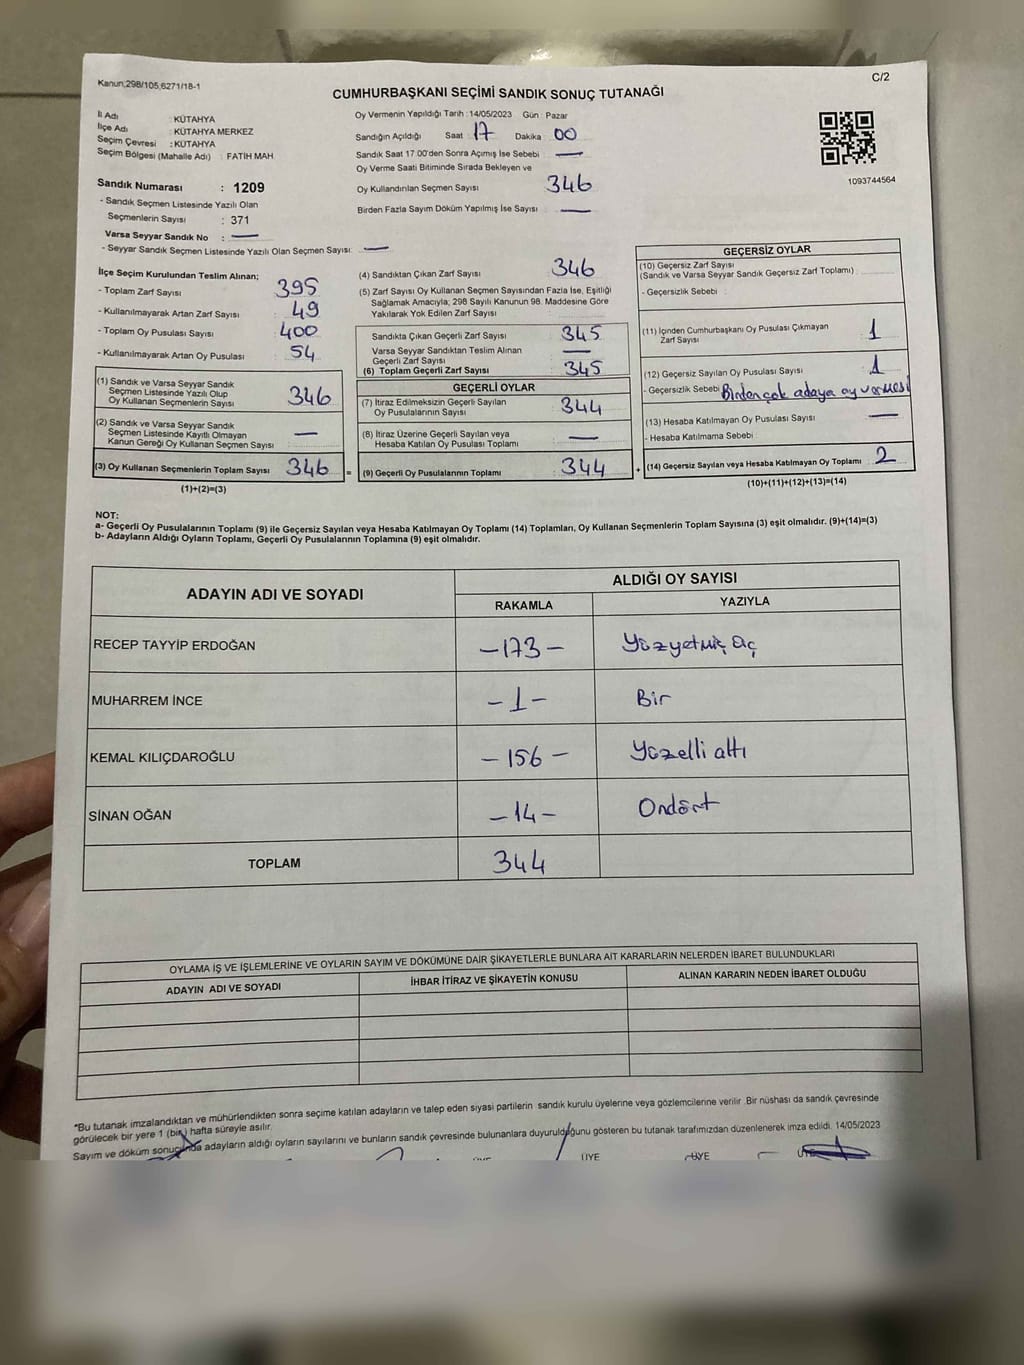 Kanun;298/105;6271/18-1
C/2
CUMHURBAŞKANI SEÇİMİ SANDIK SONUÇ TUTANAĞI
İl Adı : KÜTAHYA
İlçe Adı : KÜTAHYA MERKEZ
Seçim Çevresi : KÜTAHYA
Seçim Bölgesi (Mahalle Adı) : FATİH MAH
Sandık Numarası : 1209
- Sandık Seçmen Listesinde Yazılı Olan
Seçmenlerin Sayısı : 371
Varsa Seyyar Sandık No : —
- Seyyar Sandık Seçmen Listesinde Yazılı Olan Seçmen Sayısı: —
Oy Vermenin Yapıldığı Tarih :14/05/2023 Gün : Pazar
Sandığın Açıldığı Saat 17 Dakika 00
Sandık Saat 17.00'den Sonra Açımış İse Sebebi —
Oy Verme Saati Bitiminde Sırada Bekleyen ve
Oy Kullandırılan Seçmen Sayısı 346
Birden Fazla Sayım Döküm Yapılmış İse Sayısı —
1093744564
İlçe Seçim Kurulundan Teslim Alınan;
- Toplam Zarf Sayısı 395
- Kullanılmayarak Artan Zarf Sayısı 49
- Toplam Oy Pusulası Sayısı 400
- Kullanılmayarak Artan Oy Pusulası 54
(1) Sandık ve Varsa Seyyar Sandık
Seçmen Listesinde Yazılı Olup
Oy Kullanan Seçmenlerin Sayısı 346
(2) Sandık ve Varsa Seyyar Sandık
Seçmen Listesinde Kayıtlı Olmayan
Kanun Gereği Oy Kullanan Seçmen Sayısı —
(3) Oy Kullanan Seçmenlerin Toplam Sayısı 346 =
(1)+(2)=(3)
(4) Sandıktan Çıkan Zarf Sayısı 346
(5) Zarf Sayısı Oy Kullanan Seçmen Sayısından Fazla İse, Eşitliği
Sağlamak Amacıyla; 298 Sayılı Kanunun 98. Maddesine Göre
Yakılarak Yok Edilen Zarf Sayısı
Sandıkta Çıkan Geçerli Zarf Sayısı 345
Varsa Seyyar Sandıktan Teslim Alınan
Geçerli Zarf Sayısı —
(6) Toplam Geçerli Zarf Sayısı 345
GEÇERLİ OYLAR
(7) İtiraz Edilmeksizin Geçerli Sayılan
Oy Pusulalarının Sayısı 344
(8) İtiraz Üzerine Geçerli Sayılan veya
Hesaba Katılan Oy Pusulası Toplamı —
(9) Geçerli Oy Pusulalarının Toplamı 344 +
GEÇERSİZ OYLAR
(10) Geçersiz Zarf Sayısı
(Sandık ve Varsa Seyyar Sandık Geçersiz Zarf Toplamı)
- Geçersizlik Sebebi :
(11) İçinden Cumhurbaşkanı Oy Pusulası Çıkmayan
Zarf Sayısı 1
(12) Geçersiz Sayılan Oy Pusulası Sayısı 1
- Geçersizlik Sebebi Birden çok adaya oy vermesi
(13) Hesaba Katılmayan Oy Pusulası Sayısı —
- Hesaba Katılmama Sebebi
(14) Geçersiz Sayılan veya Hesaba Katılmayan Oy Toplamı 2
(10)+(11)+(12)+(13)=(14)
NOT:
a- Geçerli Oy Pusulalarının Toplamı (9) ile Geçersiz Sayılan veya Hesaba Katılmayan Oy Toplamı (14) Toplamları, Oy Kullanan Seçmenlerin Toplam Sayısına (3) eşit olmalıdır. (9)+(14)=(3)
b- Adayların Aldığı Oyların Toplamı, Geçerli Oy Pusulalarının Toplamına (9) eşit olmalıdır.
ADAYIN ADI VE SOYADI ALDIĞI OY SAYISI
RAKAMLA YAZIYLA
RECEP TAYYİP ERDOĞAN -173- Yüzyetmiş üç
MUHARREM İNCE -1- Bir
KEMAL KILIÇDAROĞLU -156- Yüzelli altı
SİNAN OĞAN -14- Ondört
TOPLAM 344
OYLAMA İŞ VE İŞLEMLERİNE VE OYLARIN SAYIM VE DÖKÜMÜNE DAİR ŞİKAYETLERLE BUNLARA AİT KARARLARIN NELERDEN İBARET BULUNDUKLARI
ADAYIN ADI VE SOYADI İHBAR İTİRAZ VE ŞİKAYETİN KONUSU ALINAN KARARIN NEDEN İBARET OLDUĞU
*Bu tutanak imzalandıktan ve mühürlendikten sonra seçime katılan adayların ve talep eden siyasi partilerin sandık kurulu üyelerine veya gözlemcilerine verilir. Bir nüshası da sandık çevresinde
görülecek bir yere 1 (bir) hafta süreyle asılır.
Sayım ve döküm sonucunda adayların aldığı oyların sayılarını ve bunların sandık çevresinde bulunanlara duyurulduğunu gösteren bu tutanak tarafımızdan düzenlenerek imza edildi. 14/05/2023
ÜYE ÜYE ÜYE